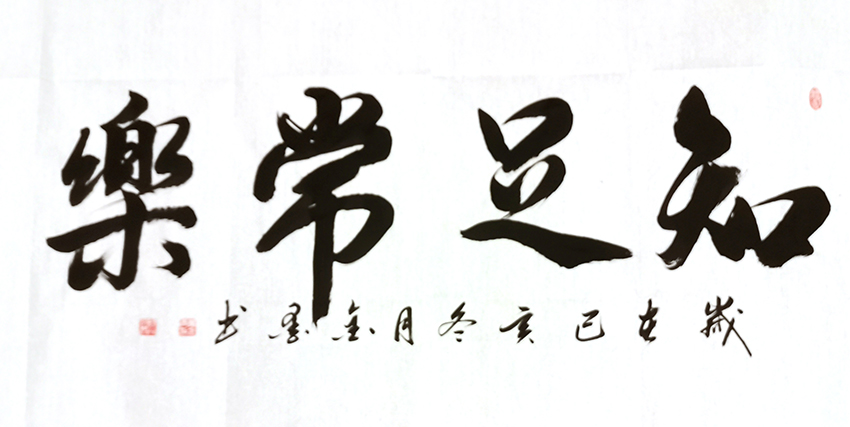 知足常樂
歲在己亥冬月金墨书